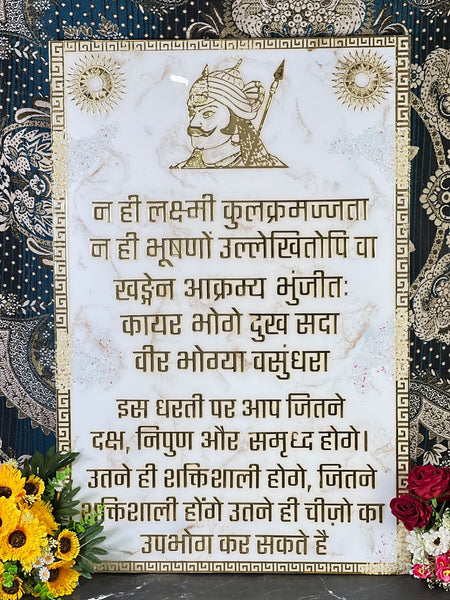 न ही लक्ष्मी कुलक्रमज्जता
न ही भूषणों उल्लेखितोपि वा
खड्गेन आक्रम्य भुंजीतः
कायर भोगे दुख सदा
वीर भोग्या वसुंधरा
इस धरती पर आप जितने
दक्ष, निपुण और समृध्द होगे।
उतने ही शक्तिशाली होगे, जितने
शक्तिशाली होंगे उतने ही चीज़ो का
उपभोग कर सकते है